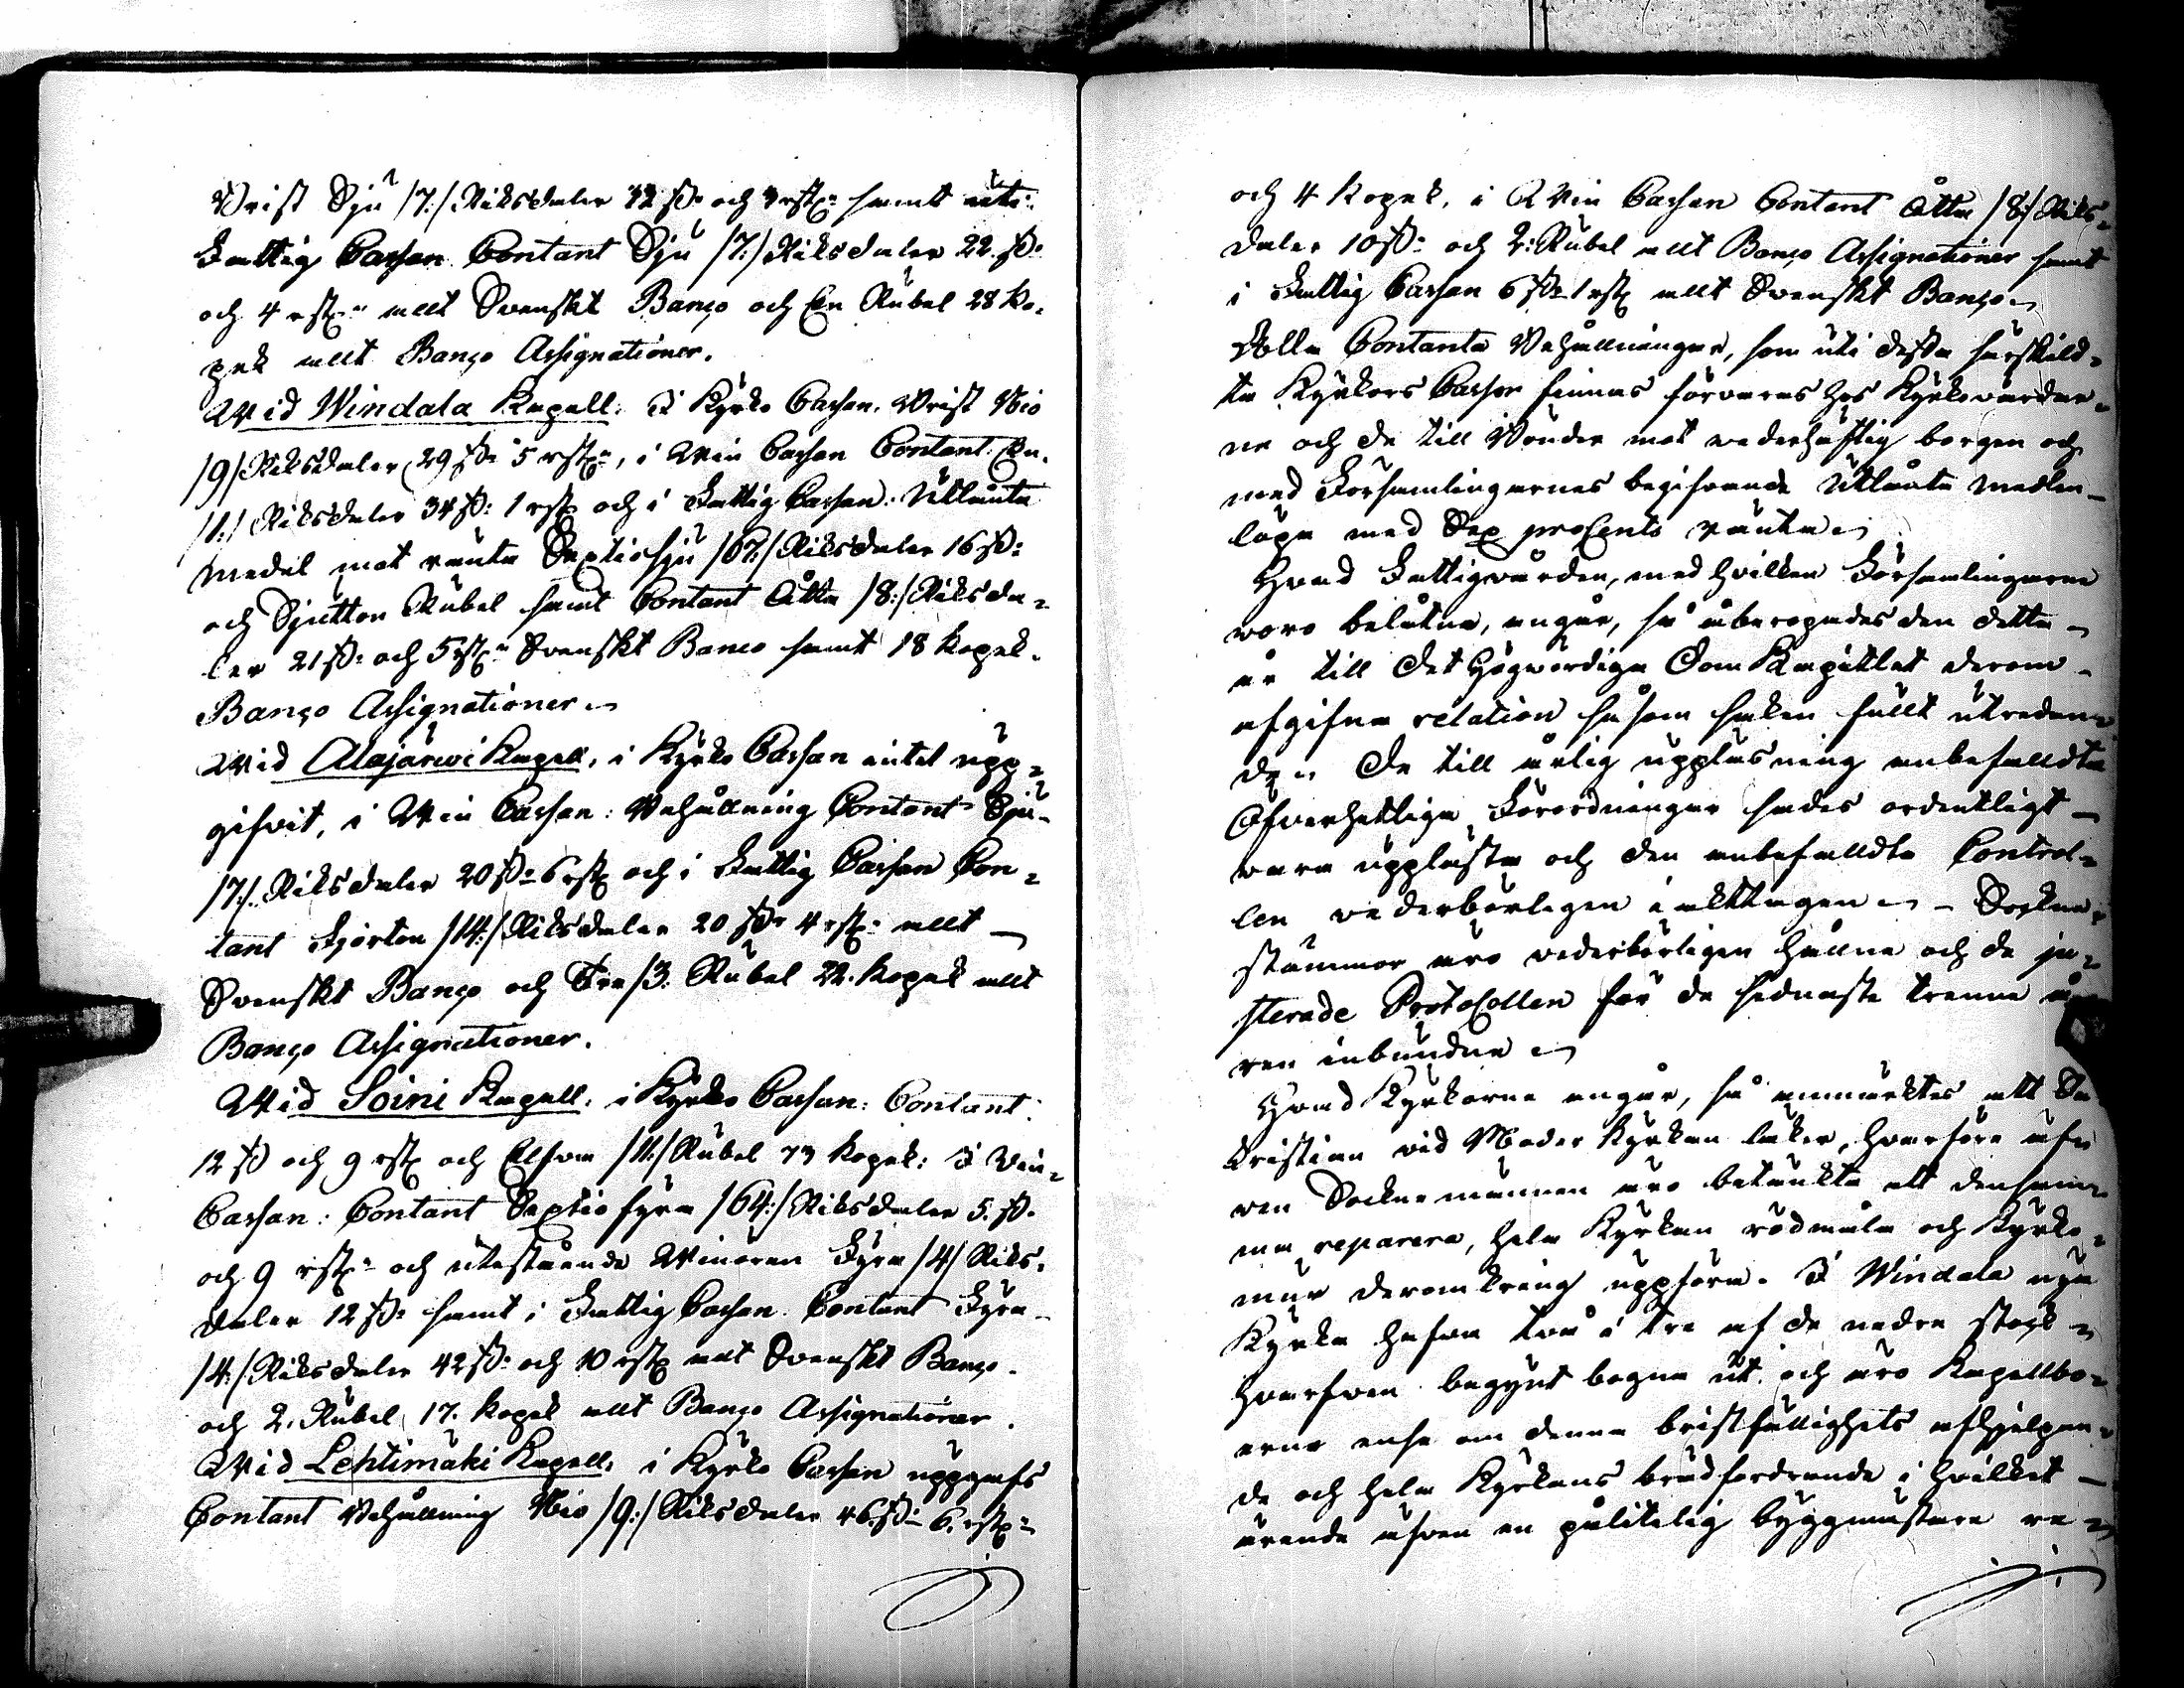 Brist Sju /7:/ Riksdaler 32 ß: och 3 rst: samt uti
Fattig Cassan Contant Sju /7:/ Riksdaler 22. ß:
och 4 rst: allt Svenskt Banço och En Rubel 28 Ko-
pek allt Banço Assignationer.
Wid Windala Kapell. I Kyrko Cassan. Brist Nio
/9/ Riksdaler 29 ß: 5 rst:, i Win Cassan Contant. En.
/1:/ Riksdaler 34 ß: 1 rst och i Fattig Cassan: Utlånta
medel mot ränta Sextiosju /67:/ Riksdaler 16 ß:
och Sjutton Rubel samt Contant Åtta /8:/ Riksda-
ler 21 ß: och 5 rst: Svenskt Banco samt 18 Kopek.
Banço Assignationer.
Wid Alajärwi Kapell, i Kyrko Cassan intet upp-
gifvit, i Win Cassan: Behållning Contant Sju-
/7:/. Riksdaler 20 ß: 6 rst och i Fattig Cassan Con-
tant Fjorton /14:/ Riksdaler 20 ß: 4 rst: allt
Svenskt Banço och Tre /3: Rubel 22. Kopek allt
Banço Assignationer.
Wid Soini Kapell. i Kyrko Cassan: Contant.
12 ß och 9 rst och Elfva /11:/ Rubel 73 Kopek: I Win-
Cassan: Contant Sextio fyra /64:/ Riksdaler 5. ß.
och 9 rst: och utestående Winören Fyra /4/ Riks-
daler 12 ß: samt i Fattig Cassan. Contant Fyra
/4:/ Riksdaler 42 ß: och 10 rst allt Svenskt Banço.
och 2. Rubel 17. Kopek allt Banço Assignationer.
Wid Lehtimäki Kapell. i Kyrko Cassan uppgafs
Contant Behållning Nio /9:/ Riksdaler 46. ß: 6. rst:
och 4 Kopek, i Win Cassan Contant Åtta /8:/ Riks-
daler 10 ß: och 2: Rubel allt Banço Assignationer samt
i Fattig Cassan 6 ß: 1 rst allt Svenskt Banço.
Alla Contanta Behållningar, som uti dessa särskild-
ta Kyrkors Cassor finnas förvaras hos Kyrkovärdar-
ne och de till Bönder mot vederhäftig borgen och
med Församlingarnes begifvande Utlånta medlen
löpa med Sex proCents ränta.
Hvad Fattigvården, med hvilken Församlingarne
voro belåtne, angår, så åberopades den detta
år till Det Högwördiga Dom Kapitlet derom
afgifne relation såsom saken fullt utredan-
de. De till årlig uppläsning anbefalldta
Öfverhetliga Förordningar sades ordentligt
vara uppläste och den anbefalldta Control-
len vederbörligen iakttagen. - Sockne-
stämmor äro vederbörligen hållne och de ju-
sterade ProtoCollen för de sednaste trenne å-
ren inbundne.
Hvad Kyrkorne angår, så anmärktes att Sa
kristian vid Moder Kyrkan läker, hvarföre äfv
ven Sockne männen äro betänkta att densam-
ma reparera, hela Kyrkan rödmåla och Kyrko-
mur deromkring uppföra. I Windala nya
Kyrka hafva två à tre af de nedra stock-
hvarfven begynt bogna ut, och äro Kapellbo-
erne ense om denna bristfällighets afhjelpan-
de och hela Kyrkans brädfordrande i hvilket
ärende äfven en pålitelig byggmästare re-